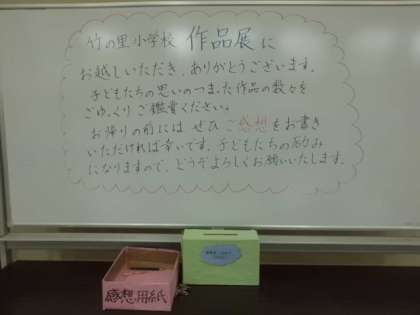 竹の里小学校 作品展に
お越しいただき、ありがとうございます。
子どもたちの思いのつまった作品の数々を
ごゆっくりご鑑賞ください。
お帰りの前には ぜひ ご感想をお書き
いただければ幸いです。子どもたちの励み
になりますので、どうぞよろしくお願いいたします。
感想用紙